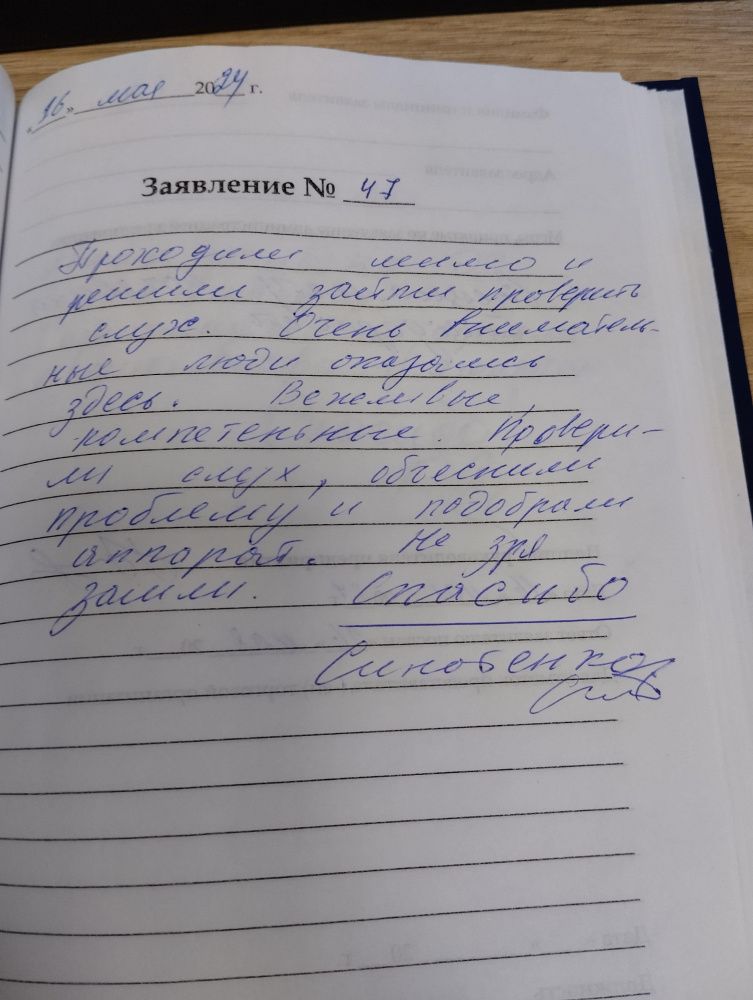 «16» мая 2024 г.
Заявление № 47
Проходили мимо и
решили зайти проверить
слух. Очень внематель-
ные люди оказались
здесь. Вежливые,
компетеньные. Провери-
ли слух, объеснили
проблему и подобрали
аппарат. Не зря
зашли. Спасибо